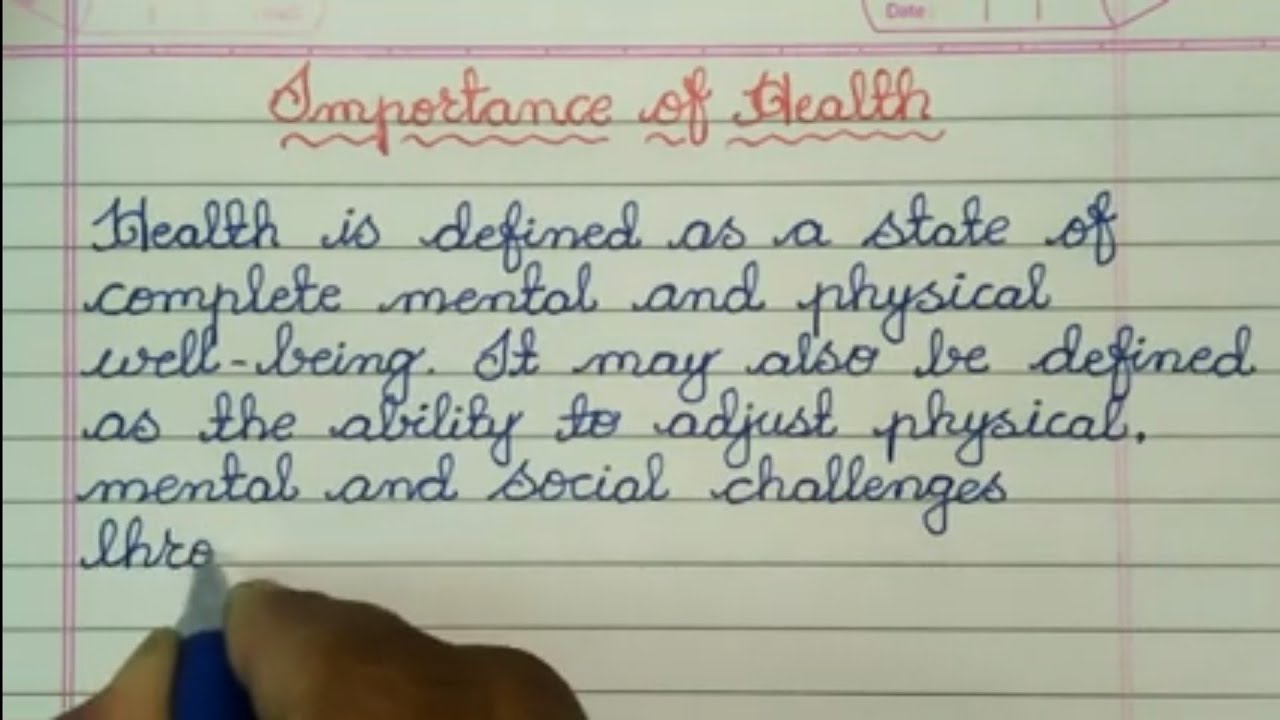 Date
Importance of Health
Health is defined as a state of
complete mental and physical
well-being. It may also be defined
as the ability to adjust physical.
mental and social challenges
thro